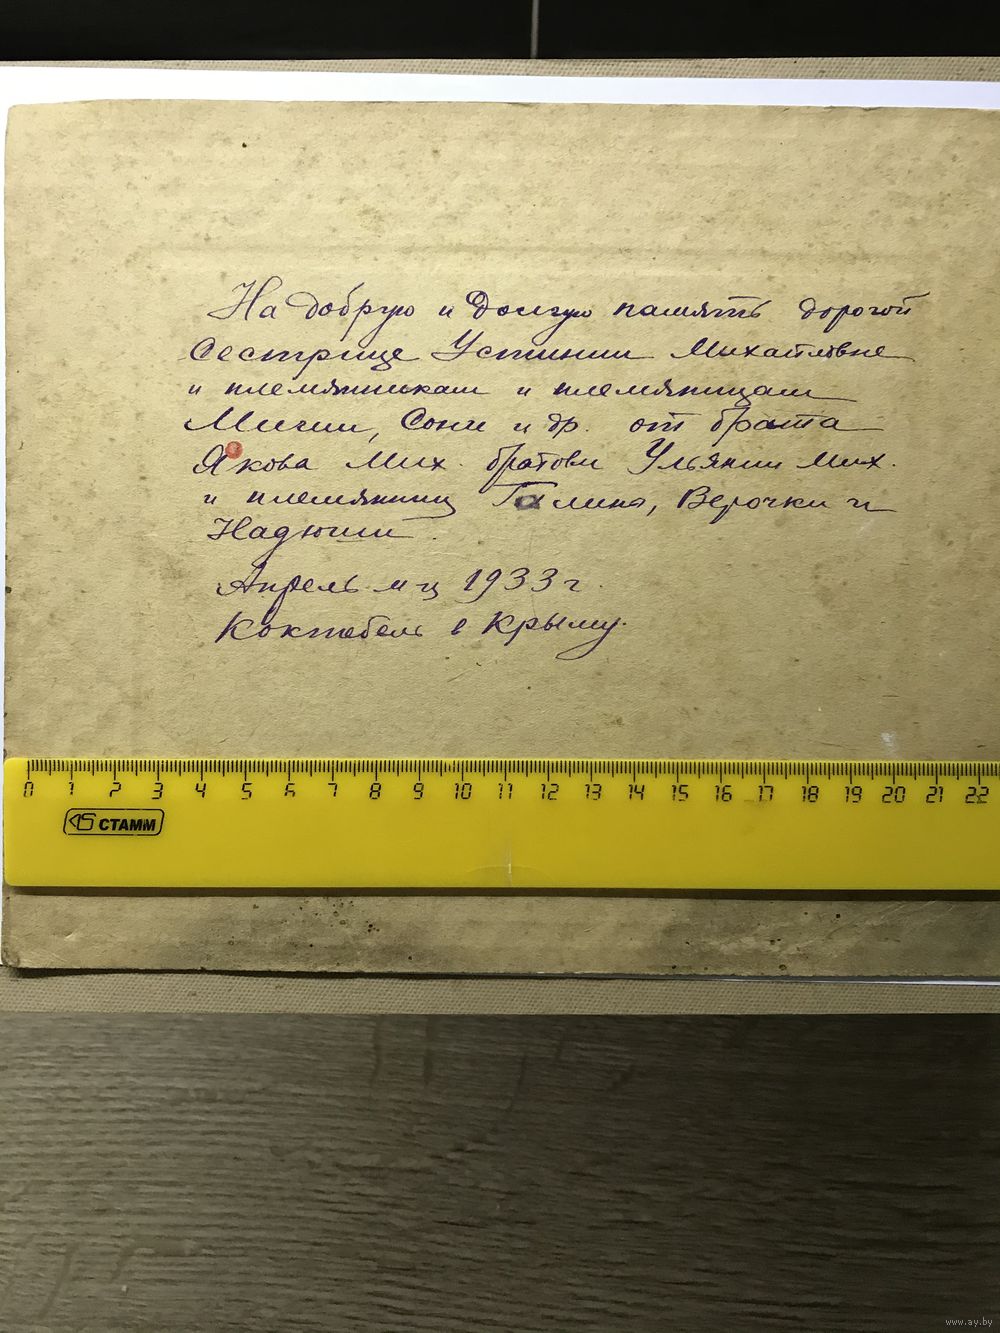 На добрую и Долгую память дорогой
Сестрице Устинии Михайловне
и племянникам и племянницам
Мисии, Сони и др. от брата
Якова Мих. братови Ульянии Мих.
и племянниц Галина, Верочки и
Надюши.
Апрель м-ц 1933 г.
Коктебель в Крыму.
0 1 2 3 4 5 6 7 8 9 10 11 12 13 14 15 16 17 18 19 20 21 22
СТАММ
www.ay.by